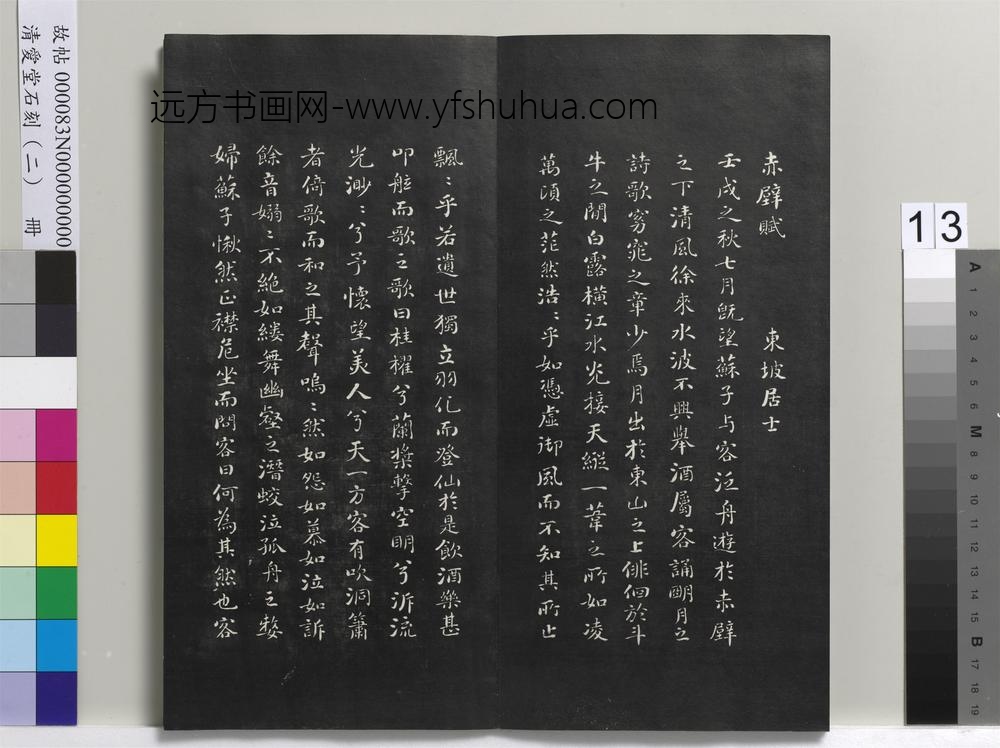 故帖 000083N000000000
清愛堂石刻(二) 冊
远方书画网-www.yfshuhua.com
13
赤壁賦 東坡居士
壬戌之秋七月旣望蘇子与客泛舟遊於赤壁
之下清風徐來水波不興舉酒屬客誦明月之
詩歌窈窕之章少焉月出於東山之上徘徊於斗
牛之閒白露橫江水光接天縱一葦之所如凌
萬頃之茫然浩:乎如憑虛御風而不知其所止
飄:乎若遺世獨立羽化而登仙於是飲酒樂甚
叩舷而歌之歌曰桂櫂兮蘭槳擊空明兮泝流
光渺:兮予懷望美人兮天一方客有吹洞簫
者倚歌而和之其聲嗚:然如怨如慕如泣如訴
餘音嫋:不絶如縷舞幽壑之潛蛟泣孤舟之嫠
婦蘇子愀然正襟危坐而問客曰何為其然也客
A 1 2 3 4 5 6 M 8 9 10 11 12 13 14 15 B 17 18 19